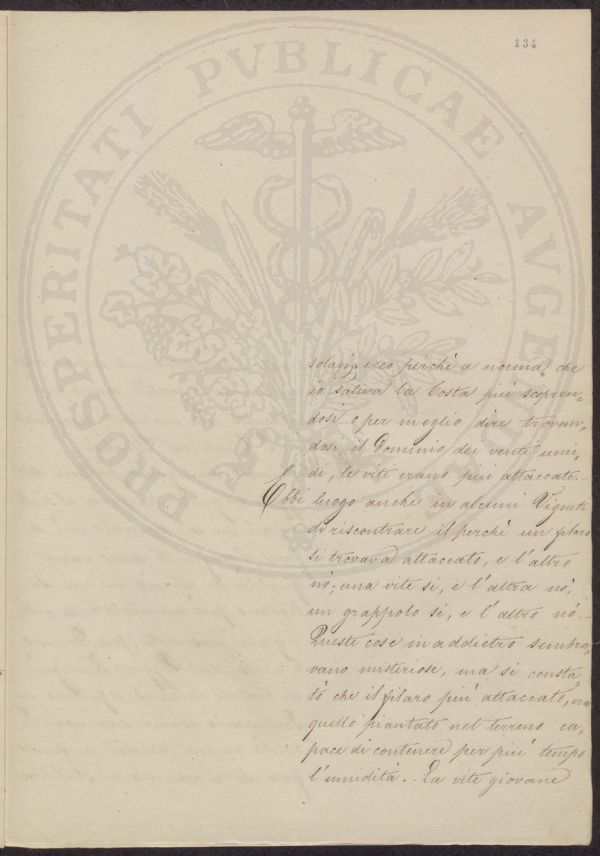 134
PROSPERITATI PVBLICAE AVGENDAE
solari; ecco perchè a norma che
io saliva la Costa più scopren„
dosi o per meglio dire trovan„
dosi il Dominio dei venti umi„
di, le viti erano più attaccate.-
Ebbi luogo anche in alcuni Vigneti
di riscontrare il perchè un filaro
si trovava attaccato, e l'altro
nò; una vite si, e l'altra nò;
un grappolo si, e l'altro nò.-
Queste cose in addietro sembra„
vano misteriose, ma si consta„
tò che il filaro più attaccato, era
quello piantato nel terreno ca„
pace di contenere per più tempo
l'umidità.- La vite giovane